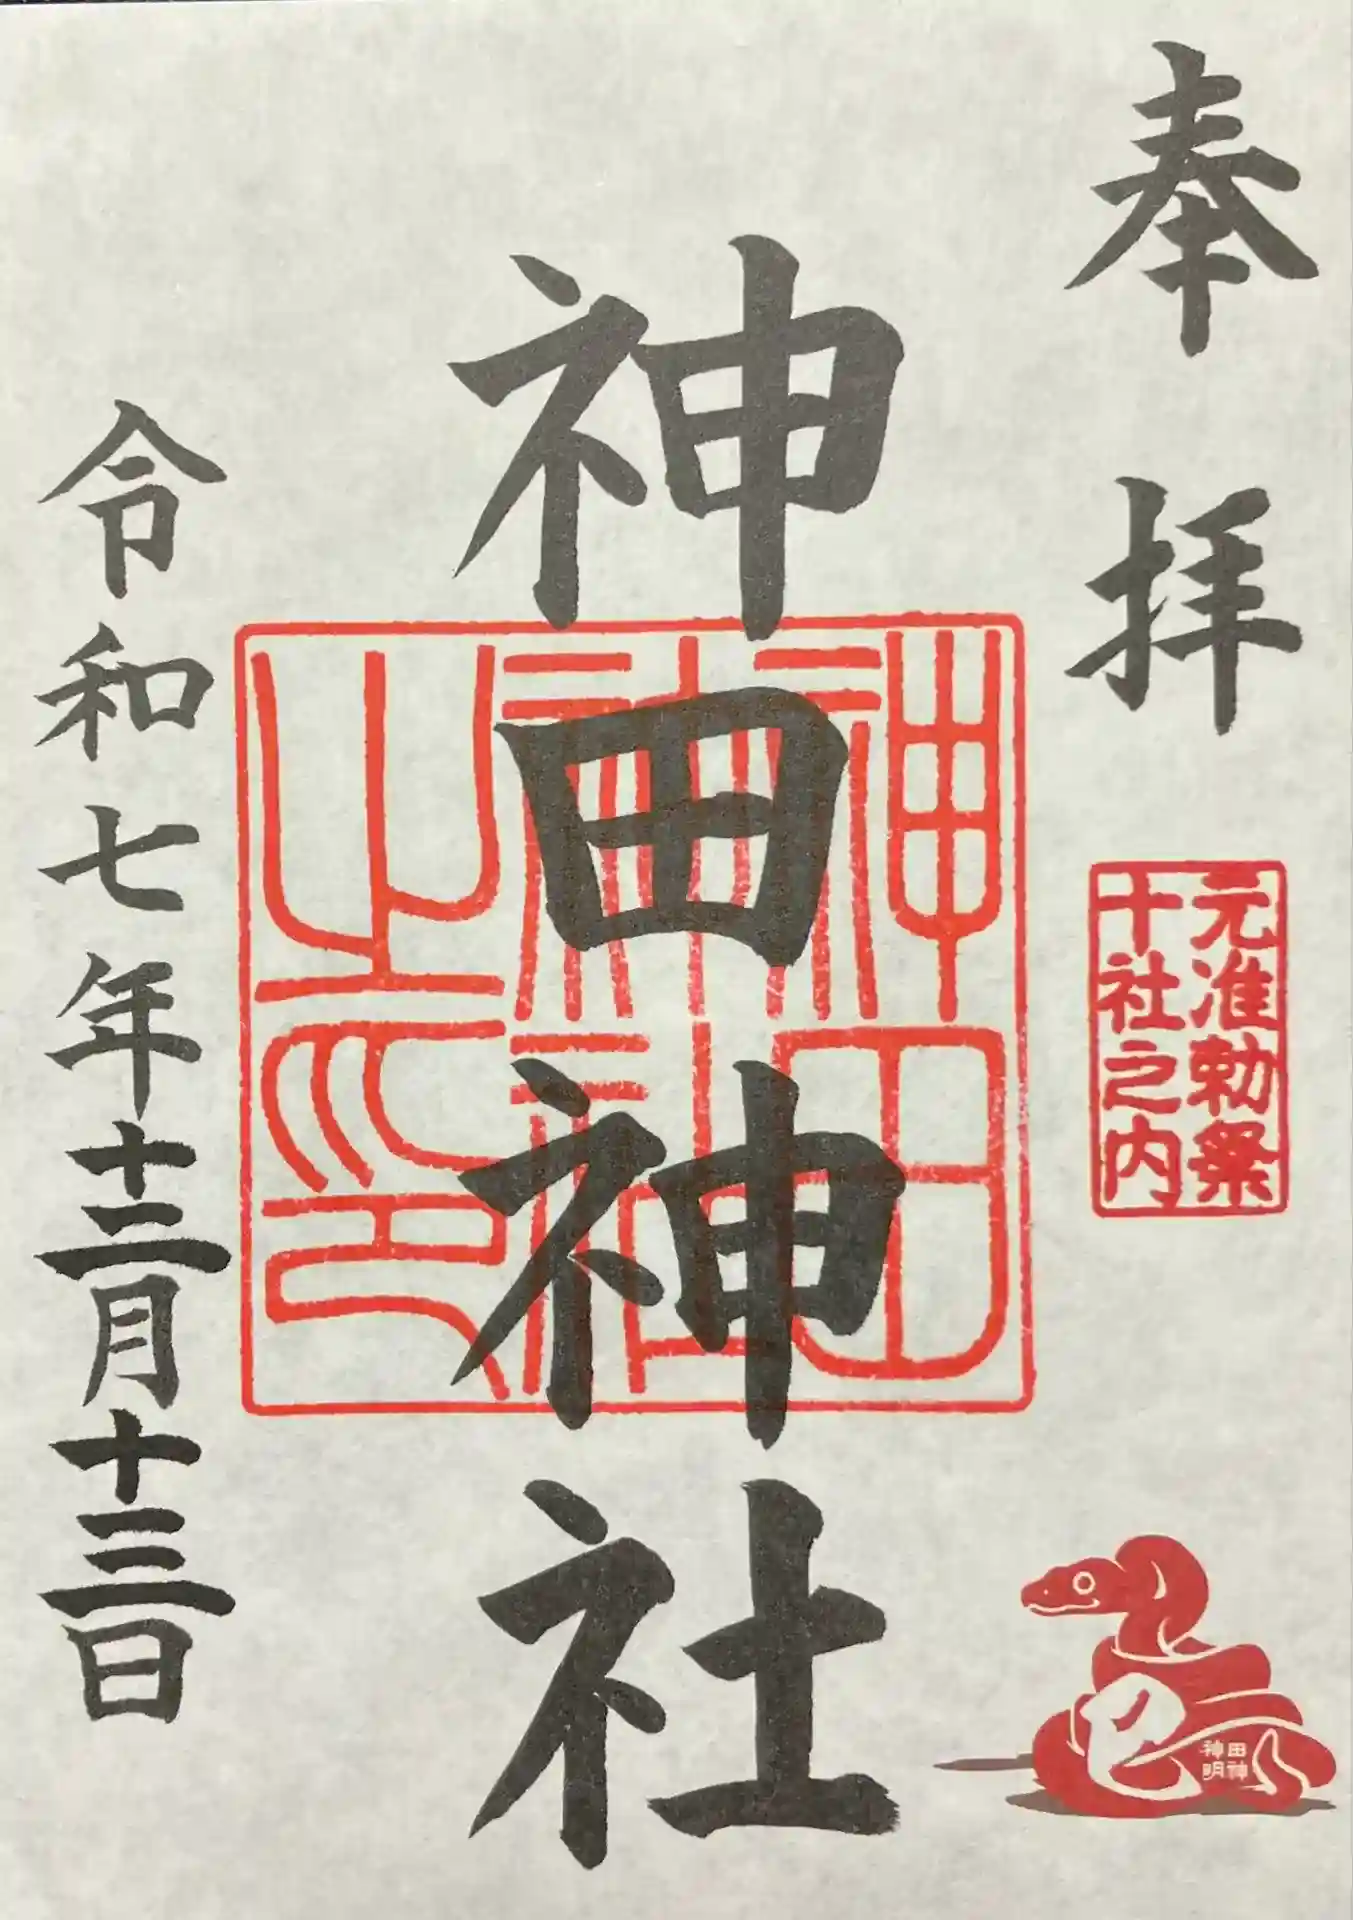 奉拝
元准勅祭
十社之内
巳
田神
神明
神田神社
神田
神社
之印
令和七年十二月十三日